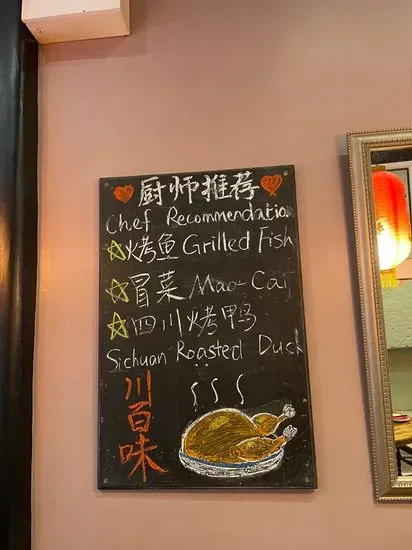 厨师推荐
Chef Recommendatio
烤鱼 Grilled Fish
冒菜 Mao-Cai
四川烤鸭
Sichuan Roasted Duck
川百味